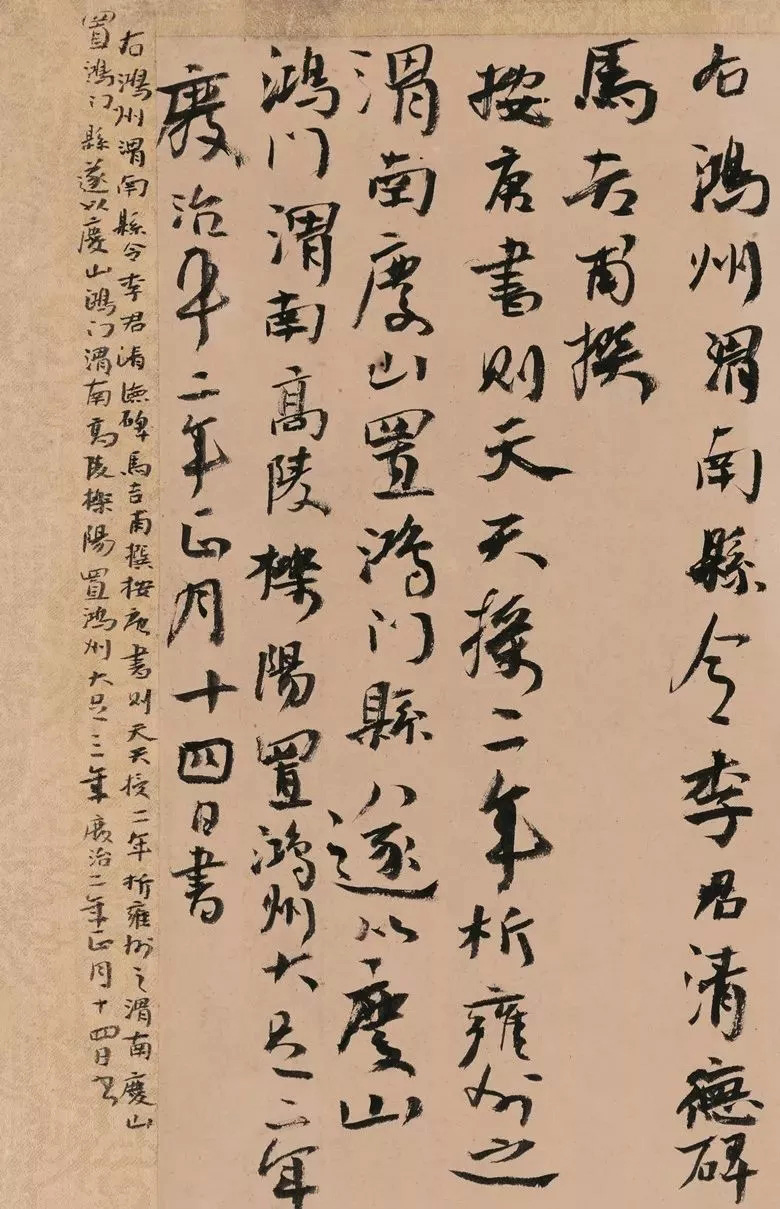 右鴻州渭南縣令李君清德碑
馬吉甫撰
按唐書則天天授二年析雍州之
渭南慶山置鴻门縣八遂以慶山
鴻门渭南高陵櫟陽置鴻州大足二年
廢治平二年正月十四日書
右鴻州渭南縣令李君清德碑馬吉甫撰按唐書則天天授二年析雍州之渭南慶山
置鴻门縣遂以慶山鴻门渭南高陵櫟陽置鴻州大足三年廢治二年正月十四日書